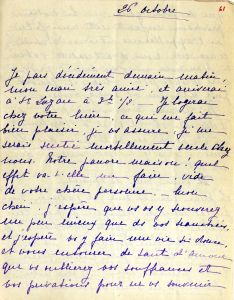 26 octobre
61
Je pars décidément demain matin,
mon mari bien aimé, et arriverai
à St Lazare à 3h 1/2 – Je logerai
chez votre mère, ce que me fait
bien plaisir, je vs assure. Je me
serais sentie mortellement seule chez
nous. Notre pauvre maison! quel
effet va-t-elle me faire, vide
de votre chère personne – Mon
chéri, j'espère que vs vs y trouverez
un peu mieux que ds vos tranchées,
et j'espère vs y faire une vie si douce,
et vous entourer de tant d'amour
que vs oublierez vos souffrances et
vos privations pour ne vs souvenir